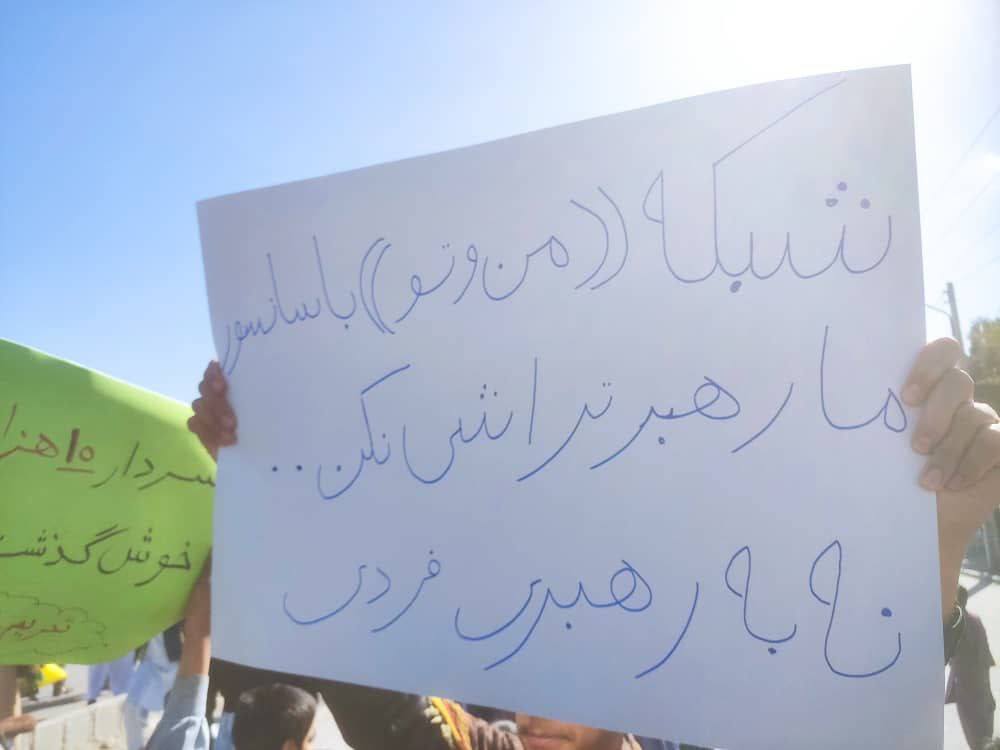 شبکه ((من و تو)) با سانسور
ما رهبر تراشی نکن..
نه به رهبری فردی
سردار
خوش گذشت